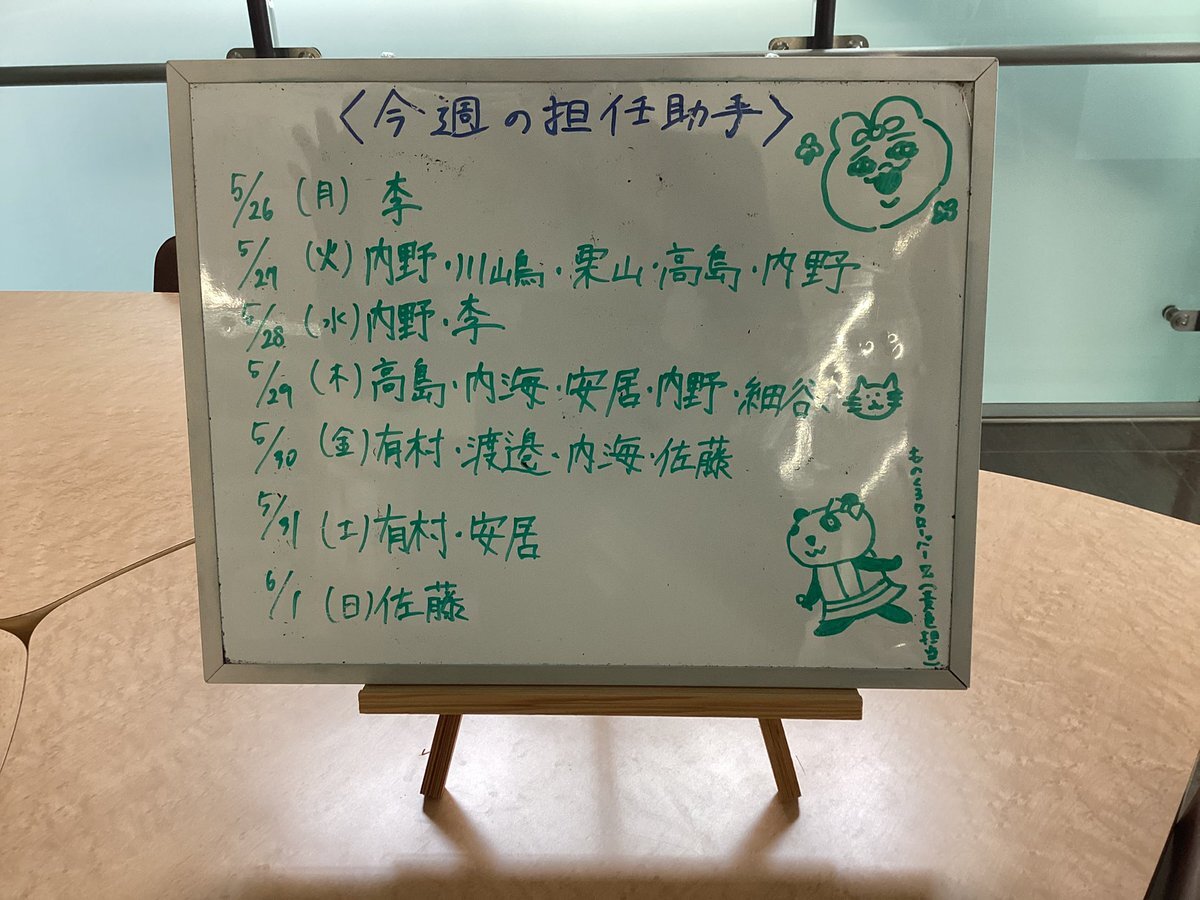 〈今週の担任助手〉
5/26 (月) 李
5/27 (火) 内野・川嶋・栗山・高島・内野
5/28 (水) 内野・李
5/29 (木) 高島・内海・安居・内野・細谷
5/30 (金) 有村・渡邉・内海・佐藤
5/31 (土) 有村・安居
6/1 (日) 佐藤
ものくろクローバーZ(黄色担当)